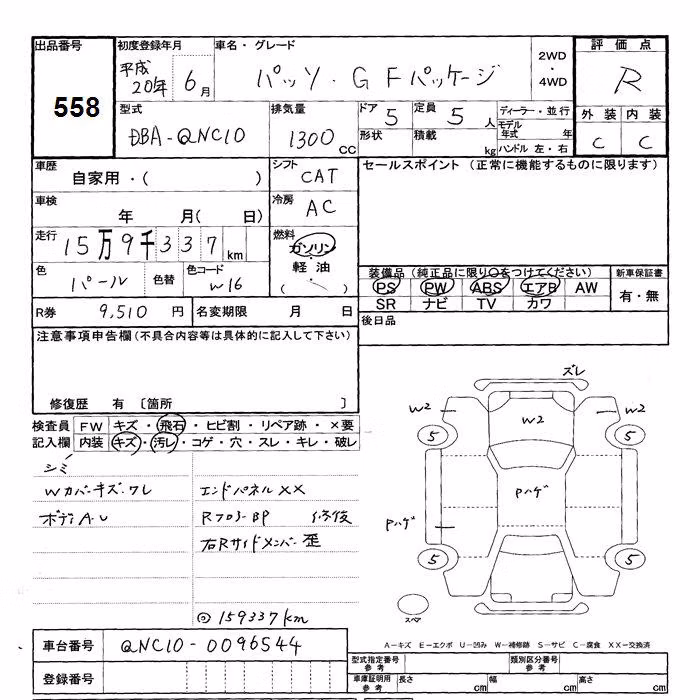 出品番号
558
初度登録年月
平成
20年 6月
車名・グレード
パッソ・G Fパッケージ
2WD
・
4WD
評価点
R
外装 内装
C C
型式
DBA-QNC10
排気量
1300 CC
ドア 5
定員 5 人
形状
積載 kg
ディーラー・並行
モデル年式 年
ハンドル 左・右
車歴
自家用・( )
シフト
CAT
セールスポイント (正常に機能するものに限ります)
車検
年 月( 日)
冷房
AC
走行
15万9千337km
燃料
ガソリン
・
軽油
( )
色
パール
色替
色コード
W16
装備品 (純正品に限り○をつけてください)
PS PW ABS エアB AW
SR ナビ TV カワ
新車保証書
有・無
R券 9,510 円
名変期限 月 日
後日品
注意事項申告欄 (不具合内容等は具体的に記入して下さい)
修復歴 有 〔箇所 〕
検査員 FW キズ・飛石・ヒビ割・リペア跡・×要
記入欄 内装 キズ・汚レ・コゲ・穴・スレ・キレ・破レ
シミ
Wカバーキズ・ワレ
ボディA・U
エンドパネルXX
Rフロア-BP 修復
右Rサイドメンバー歪
◎159337km
ズレ
W2
W2
W2
5
5
Pハゲ
Pハゲ
5
5
スペア
A-キズ E-エクボ U-凹み W-補修跡 S-サビ C-腐食 XX-交換済
車台番号 QNC10-0096544
登録番号
型式指定番号
参考
類別区分番号
参考
車庫証明用
参考
長さ cm
幅 cm
高さ cm